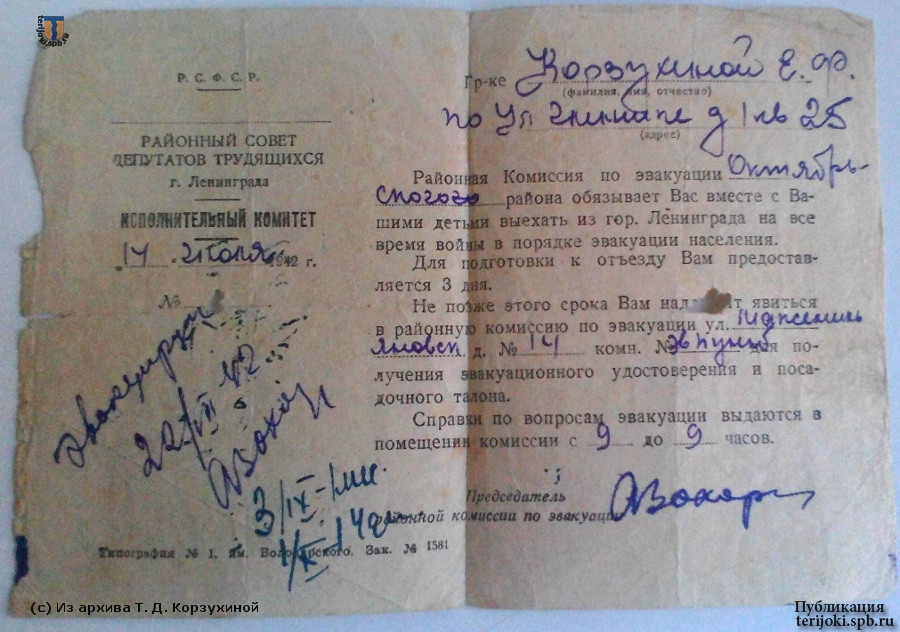 terijoki.spb.ru
Р.С.Ф.С.Р.
РАЙОННЫЙ СОВЕТ
ДЕПУТАТОВ ТРУДЯЩИХСЯ
г. Ленинграда
ИСПОЛНИТЕЛЬНЫЙ КОМИТЕТ
14 июля 1942 г.
№
42
3/IX
1/X
Типография № 1. им. Володарского. Зак. № 1581
Гр-ке Корзухиной Е. Ф.
(фамилия, имя, отчество)
по ул д 1 кв 25
(адрес)
Районная Комиссия по эвакуации Октябрь-
ского района обязывает Вас вместе с Ва-
шими детьми выехать из гор. Ленинграда на все
время войны в порядке эвакуации населения.
Для подготовки к отъезду Вам предостав-
ляется 3 дня.
Не позже этого срока Вам надлежит явиться
в районную комиссию по эвакуации ул.
д. № 14 комн. № эвпункт для по-
лучения эвакуационного удостоверения и поса-
дочного талона.
Справки по вопросам эвакуации выдаются в
помещении комиссии с 9 до 9 часов.
Председатель
районной комиссии по эвакуации
(c) Из архива Т. Д. Корзухиной
Публикация
terijoki.spb.ru